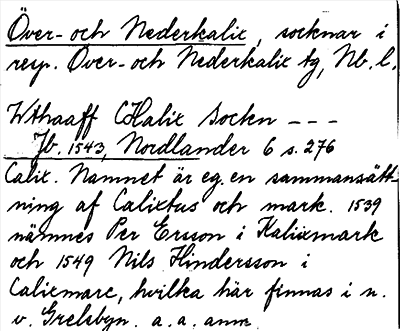 Över- och Nederkalix, socknar i
resp. Över- och Nederkalix tg, Nb. l.
Wthaaff CHalix Sockn - - -
Jb. 1543, Nordlander 6 s. 276
Calix. Namnet är eg. en sammansätt-
ning af Calixtus och mark. 1539
nämnes Per Ersson i Kalixmark
och 1549 Nils Hindersson i
Calixmarc, hvilka här finnas i n.
v. Grelsbyn. a. a. anm.